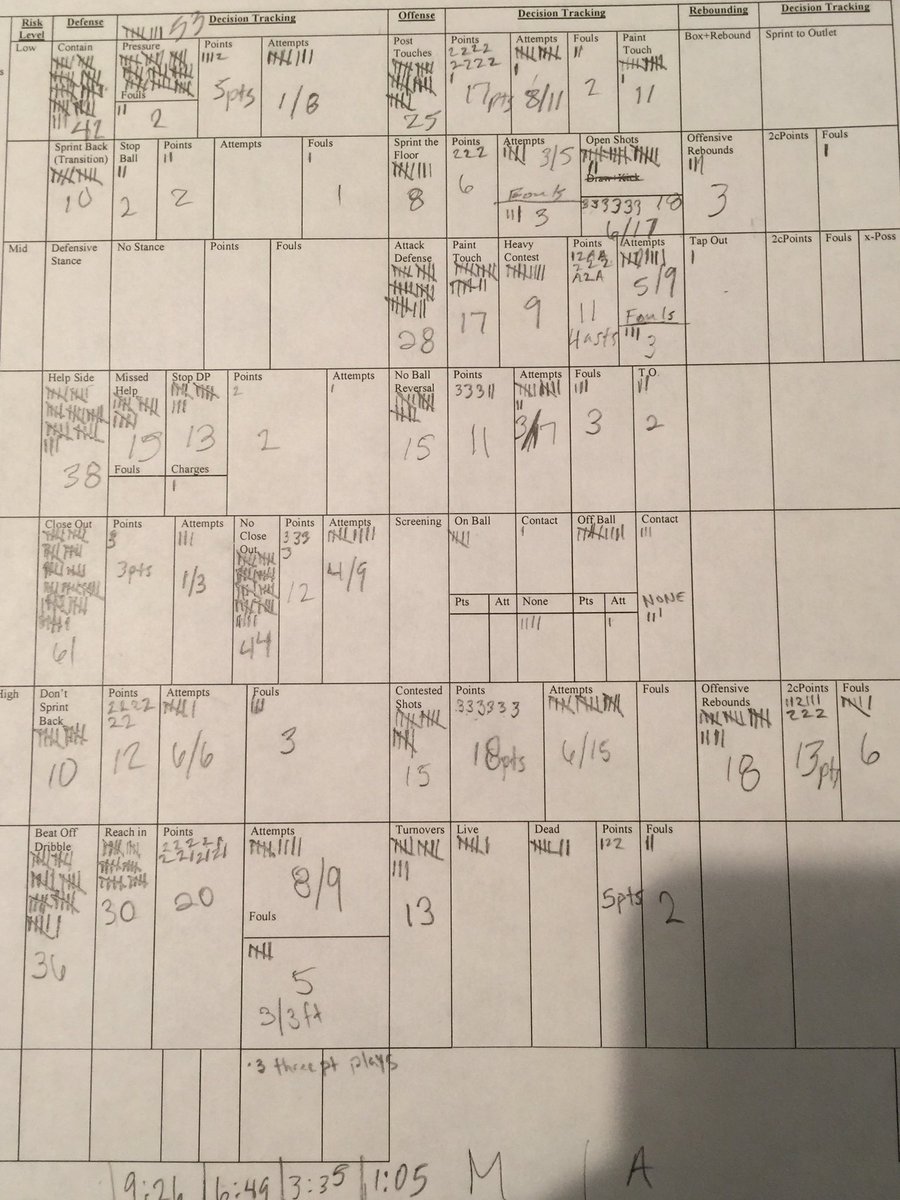 Risk Level Defense Decision Tracking 53 Offense Decision Tracking Rebounding Decision Tracking
Low Contain Pressure Points Attempts Post Touches Points Attempts Fouls Paint Touch Box+Rebound Sprint to Outlet
1112 2222
2222
Fouls
42 2 5pts 1/8 25 17pts 8/11 2 11
Sprint Back (Transition) Stop Ball Points Attempts Fouls Sprint the Floor Points Attempts Open Shots Offensive Rebounds 2cPoints Fouls
222 3/5 Draw+Kick
10 2 2 1 8 6 Fouls 333333 18 3
3 6/17
Mid Defensive Stance No Stance Points Fouls Attack Defense Paint Touch Heavy Contest Points Attempts Tap Out 2cPoints Fouls x-Poss
A2A 5/9
28 17 9 11 Fouls
4asts 3
Help Side Missed Help Stop DP Points Attempts No Ball Reversal Points Attempts Fouls T.O.
2 33311
38 13 2 15 11 3 2
Fouls Charges
Close Out Points Attempts No Close Out Points Attempts Screening On Ball Contact Off Ball Contact
3 333
3
3pts 1/3 12 4/9
Pts Att None Pts Att NONE
61 44
High Don't Sprint Back Points Attempts Fouls Contested Shots Points Attempts Fouls Offensive Rebounds 2cPoints Fouls
2222 333333
22 222
10 12 6/6 3 15 18pts 6/15 18 13pts 6
Beat Off Dribble Reach in Points Attempts Turnovers Live Dead Points Fouls
122
36 30 20 8/9 13 5pts 2
Fouls
5
3/3ft
3 three pt plays
9:26 6:49 3:35 1:05 M A